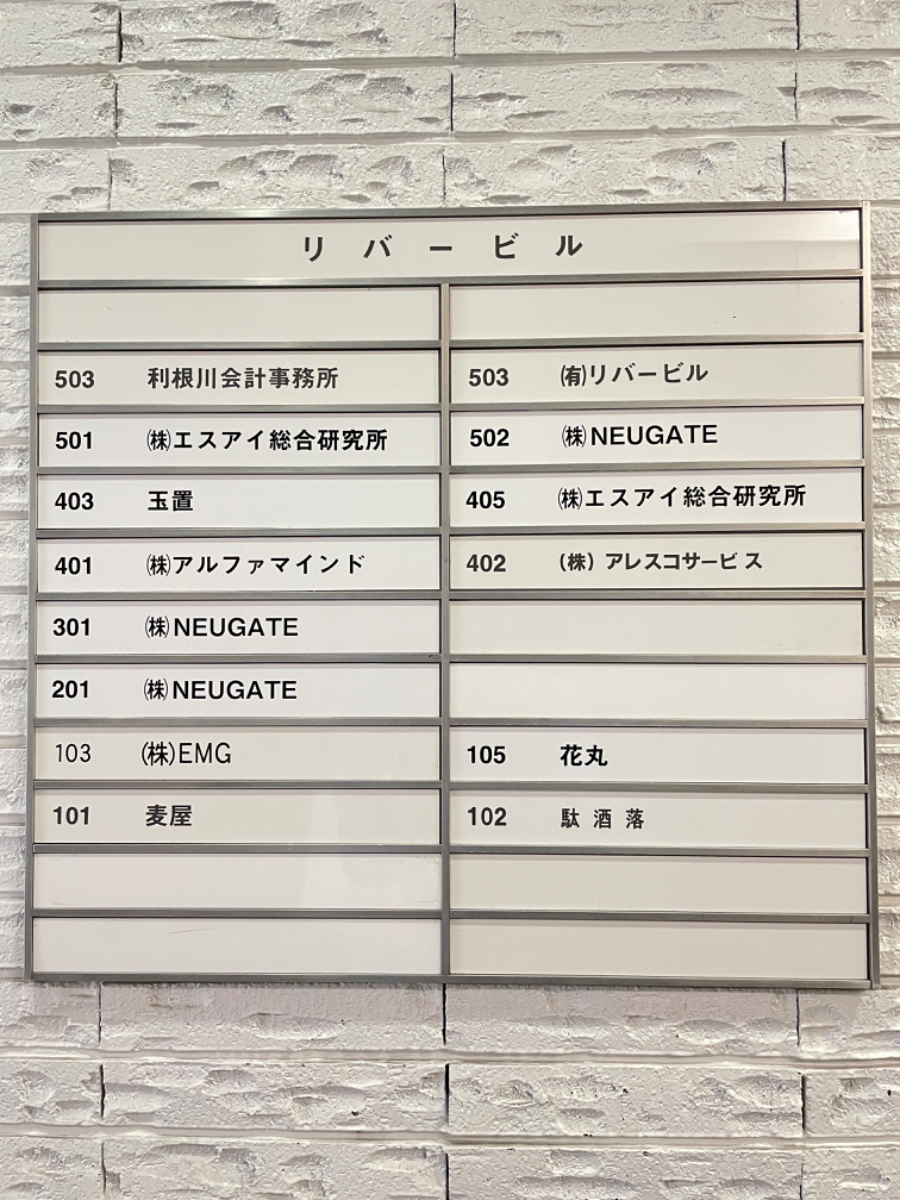 リバービル
503 利根川会計事務所
503 ㈲リバービル
501 ㈱エスアイ総合研究所
502 ㈱NEUGATE
403 玉置
405 ㈱エスアイ総合研究所
401 ㈱アルファマインド
402 (株) アレスコサービス
301 ㈱NEUGATE
201 ㈱NEUGATE
103 ㈱EMG
105 花丸
101 麦屋
102 駄酒落